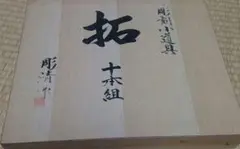 彫刻小道具
拓
十本組
彫清